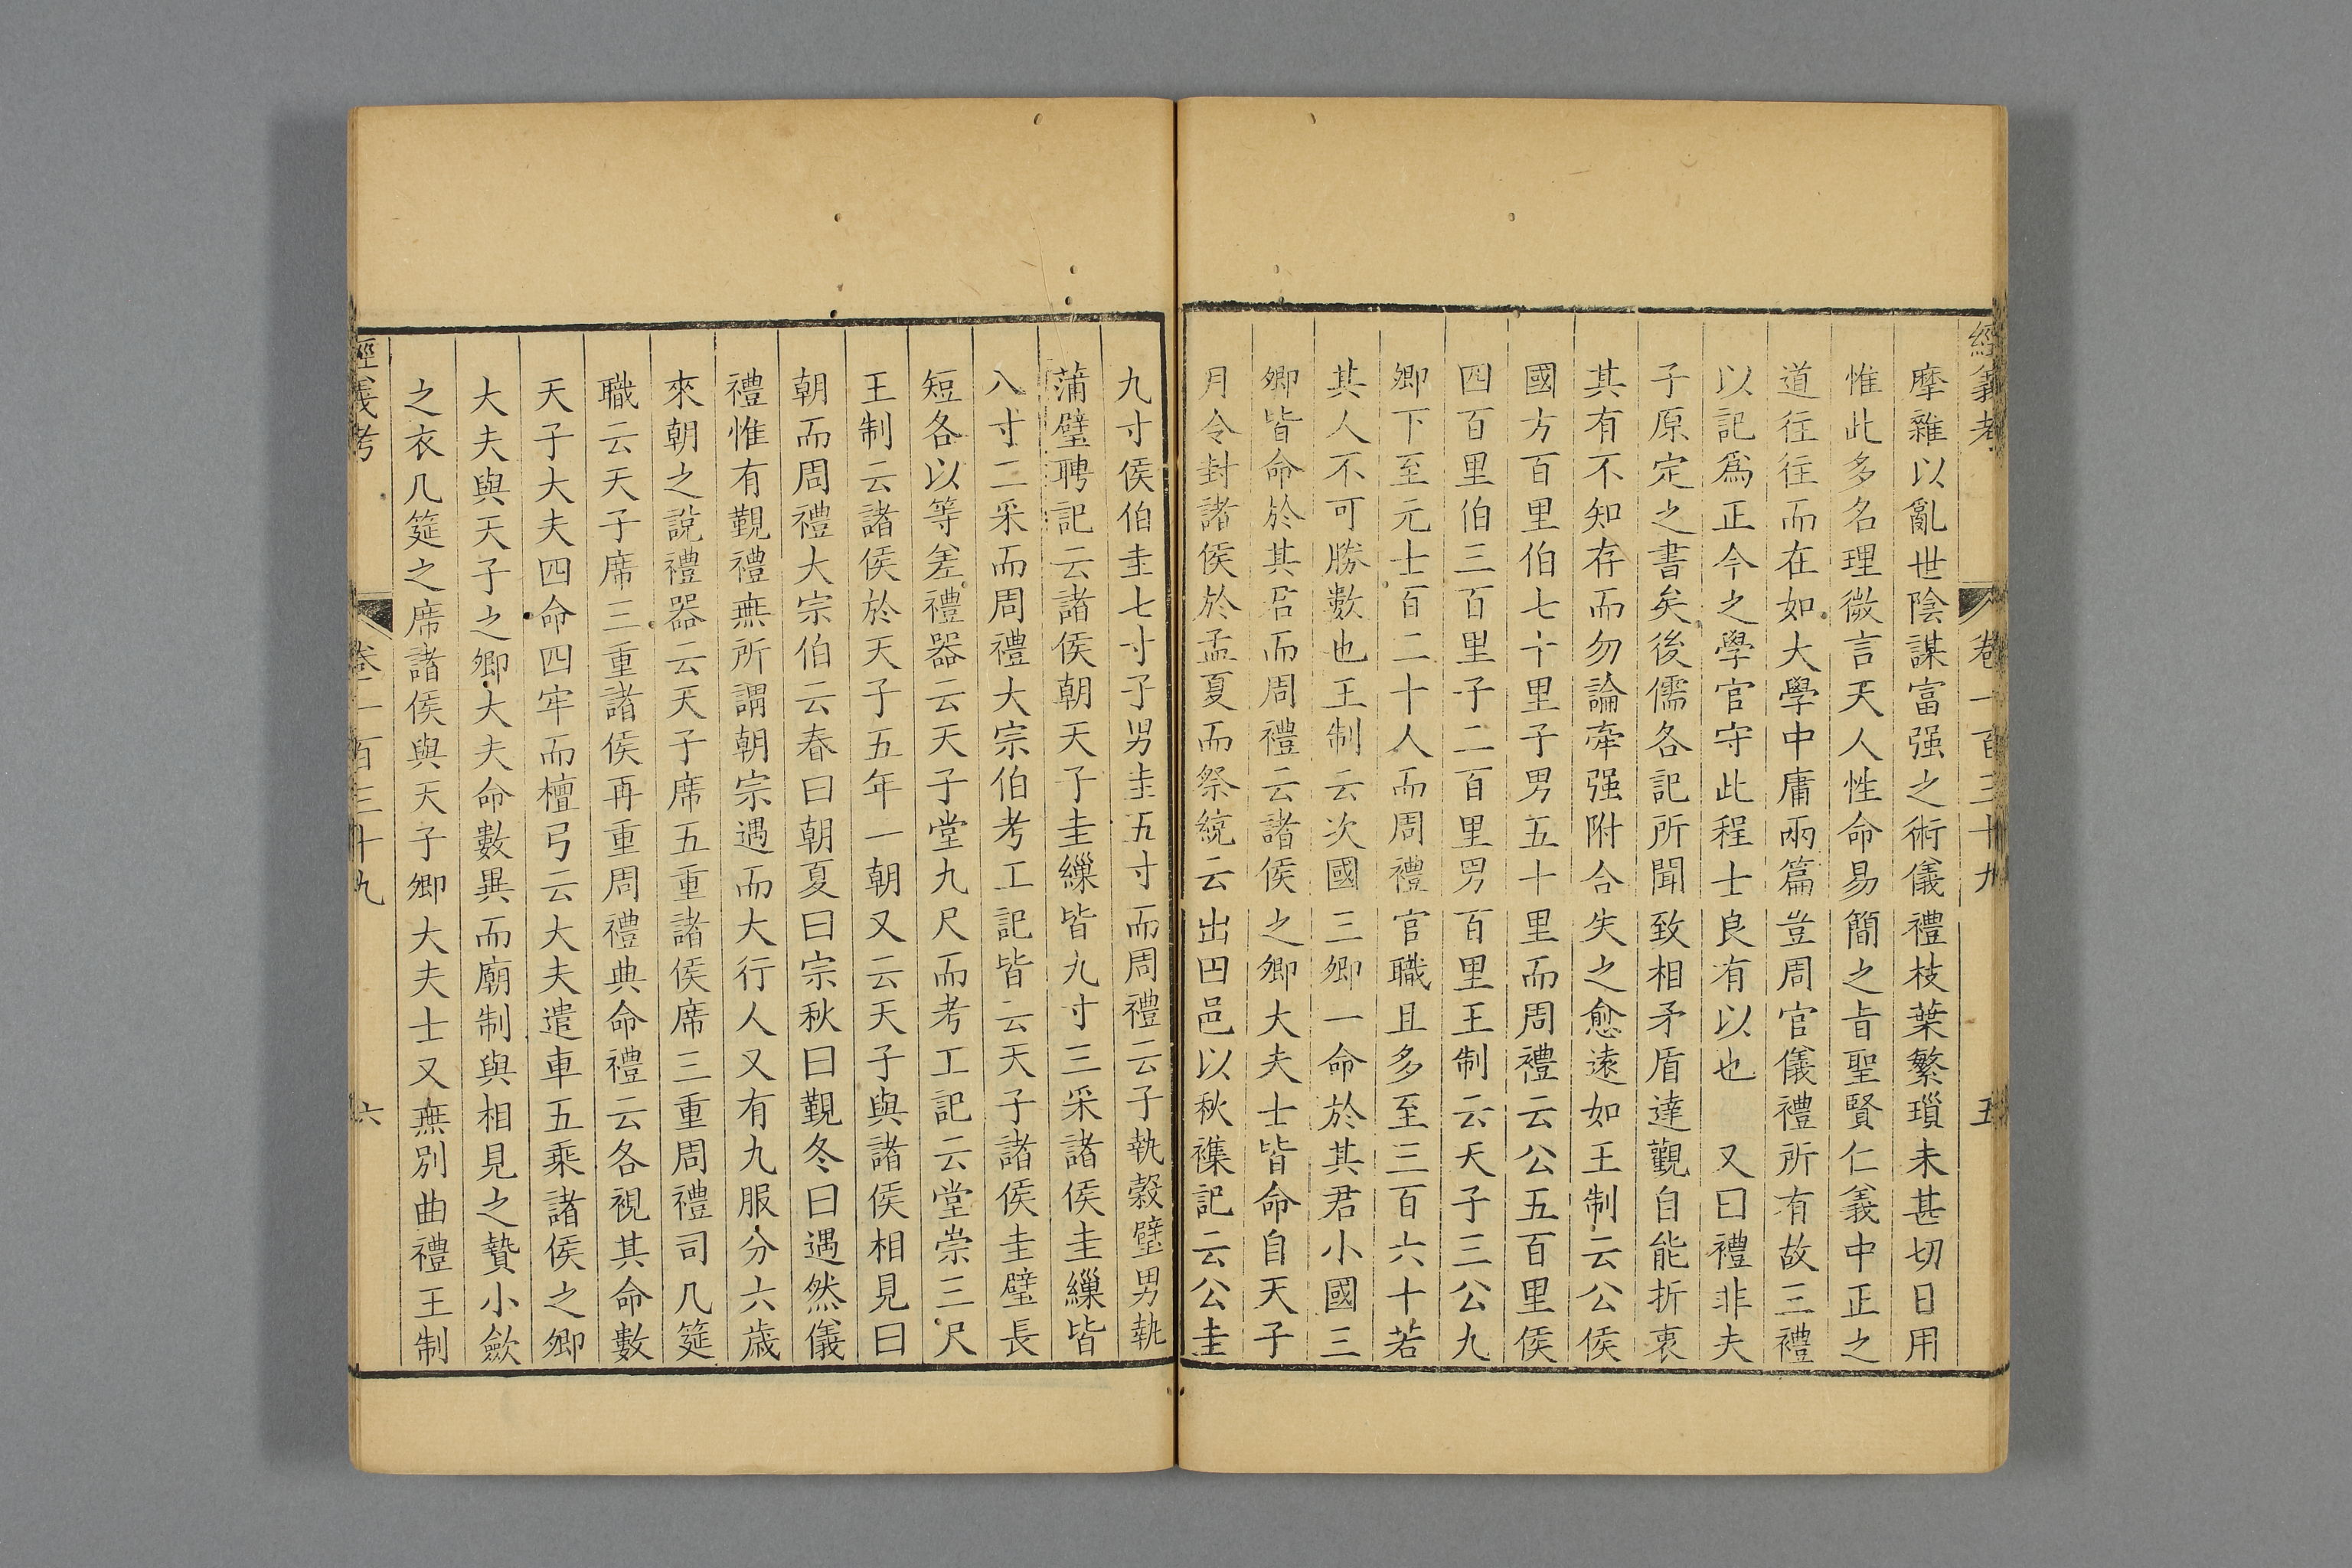 經義考 卷一百三十九 五
摩雜以亂世陰謀富强之術儀禮枝葉繁瑣未甚切日用
惟此多名理微言天人性命易簡之旨聖賢仁義中正之
道往往而在如大學中庸兩篇豈周官儀禮所有故三禮
以記爲正今之學官守此程士良有以也 又曰禮非夫
子原定之書矣後儒各記所聞致相矛盾達觀自能折衷
其有不知存而勿論牽强附合失之愈遠如王制云公侯
國方百里伯七十里子男五十里而周禮云公五百里侯
四百里伯三百里子二百里男百里王制云天子三公九
卿下至元士百二十人而周禮官職且多至三百六十若
其人不可勝數也王制云次國三卿一命於其君小國三
卿皆命於其君而周禮云諸侯之卿大夫士皆命自天子
月令封諸侯於孟夏而祭統云出田邑以秋襍記云公圭
九寸侯伯圭七寸子男圭五寸而周禮云子執榖璧男執
蒲璧聘記云諸侯朝天子圭繅皆九寸三采諸侯圭繅皆
八寸二采而周禮大宗伯考工記皆云天子諸侯圭璧長
短各以等差禮器云天子堂九尺而考工記云堂崇三尺
王制云諸侯於天子五年一朝又云天子與諸侯相見曰
朝而周禮大宗伯云春曰朝夏曰宗秋曰覲冬曰遇然儀
禮惟有覲禮無所謂朝宗遇而大行人又有九服分六歲
來朝之說禮器云天子席五重諸侯席三重周禮司几筵
職云天子席三重諸侯再重周禮典命禮云各視其命數
天子大夫四命四牢而檀弓云大夫遣車五乘諸侯之卿
大夫與天子之卿大夫命數異而廟制與相見之贄小斂
之衣几筵之席諸侯與天子卿大夫士又無別曲禮王制
經義考 卷一百三十九 六